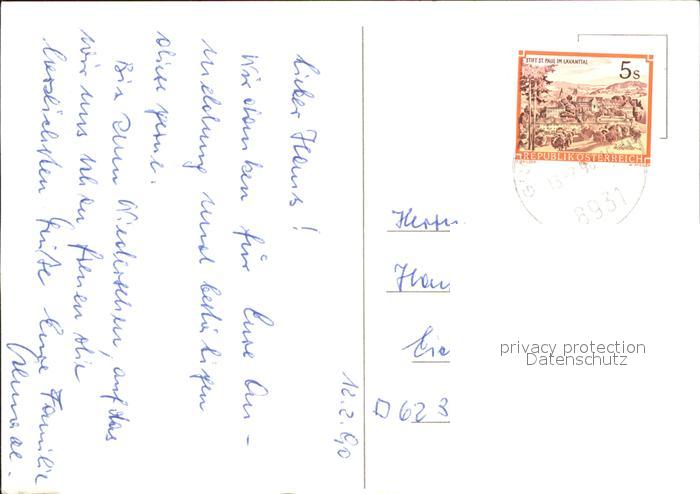 12.2.90
Lieber Hans!
Wir danken für Eure An-
meldung und bestätigen
diese gerne.
Bis zum Wiedersehen, auf das
wir uns schon freuen die
herzlichsten Grüße Eure Familie
STIFT ST. PAUL IM LAVANTTAL
5 s
REPUBLIK ÖSTERREICH
8931
Herrn
Han
D 623
privacy protection
Datenschutz